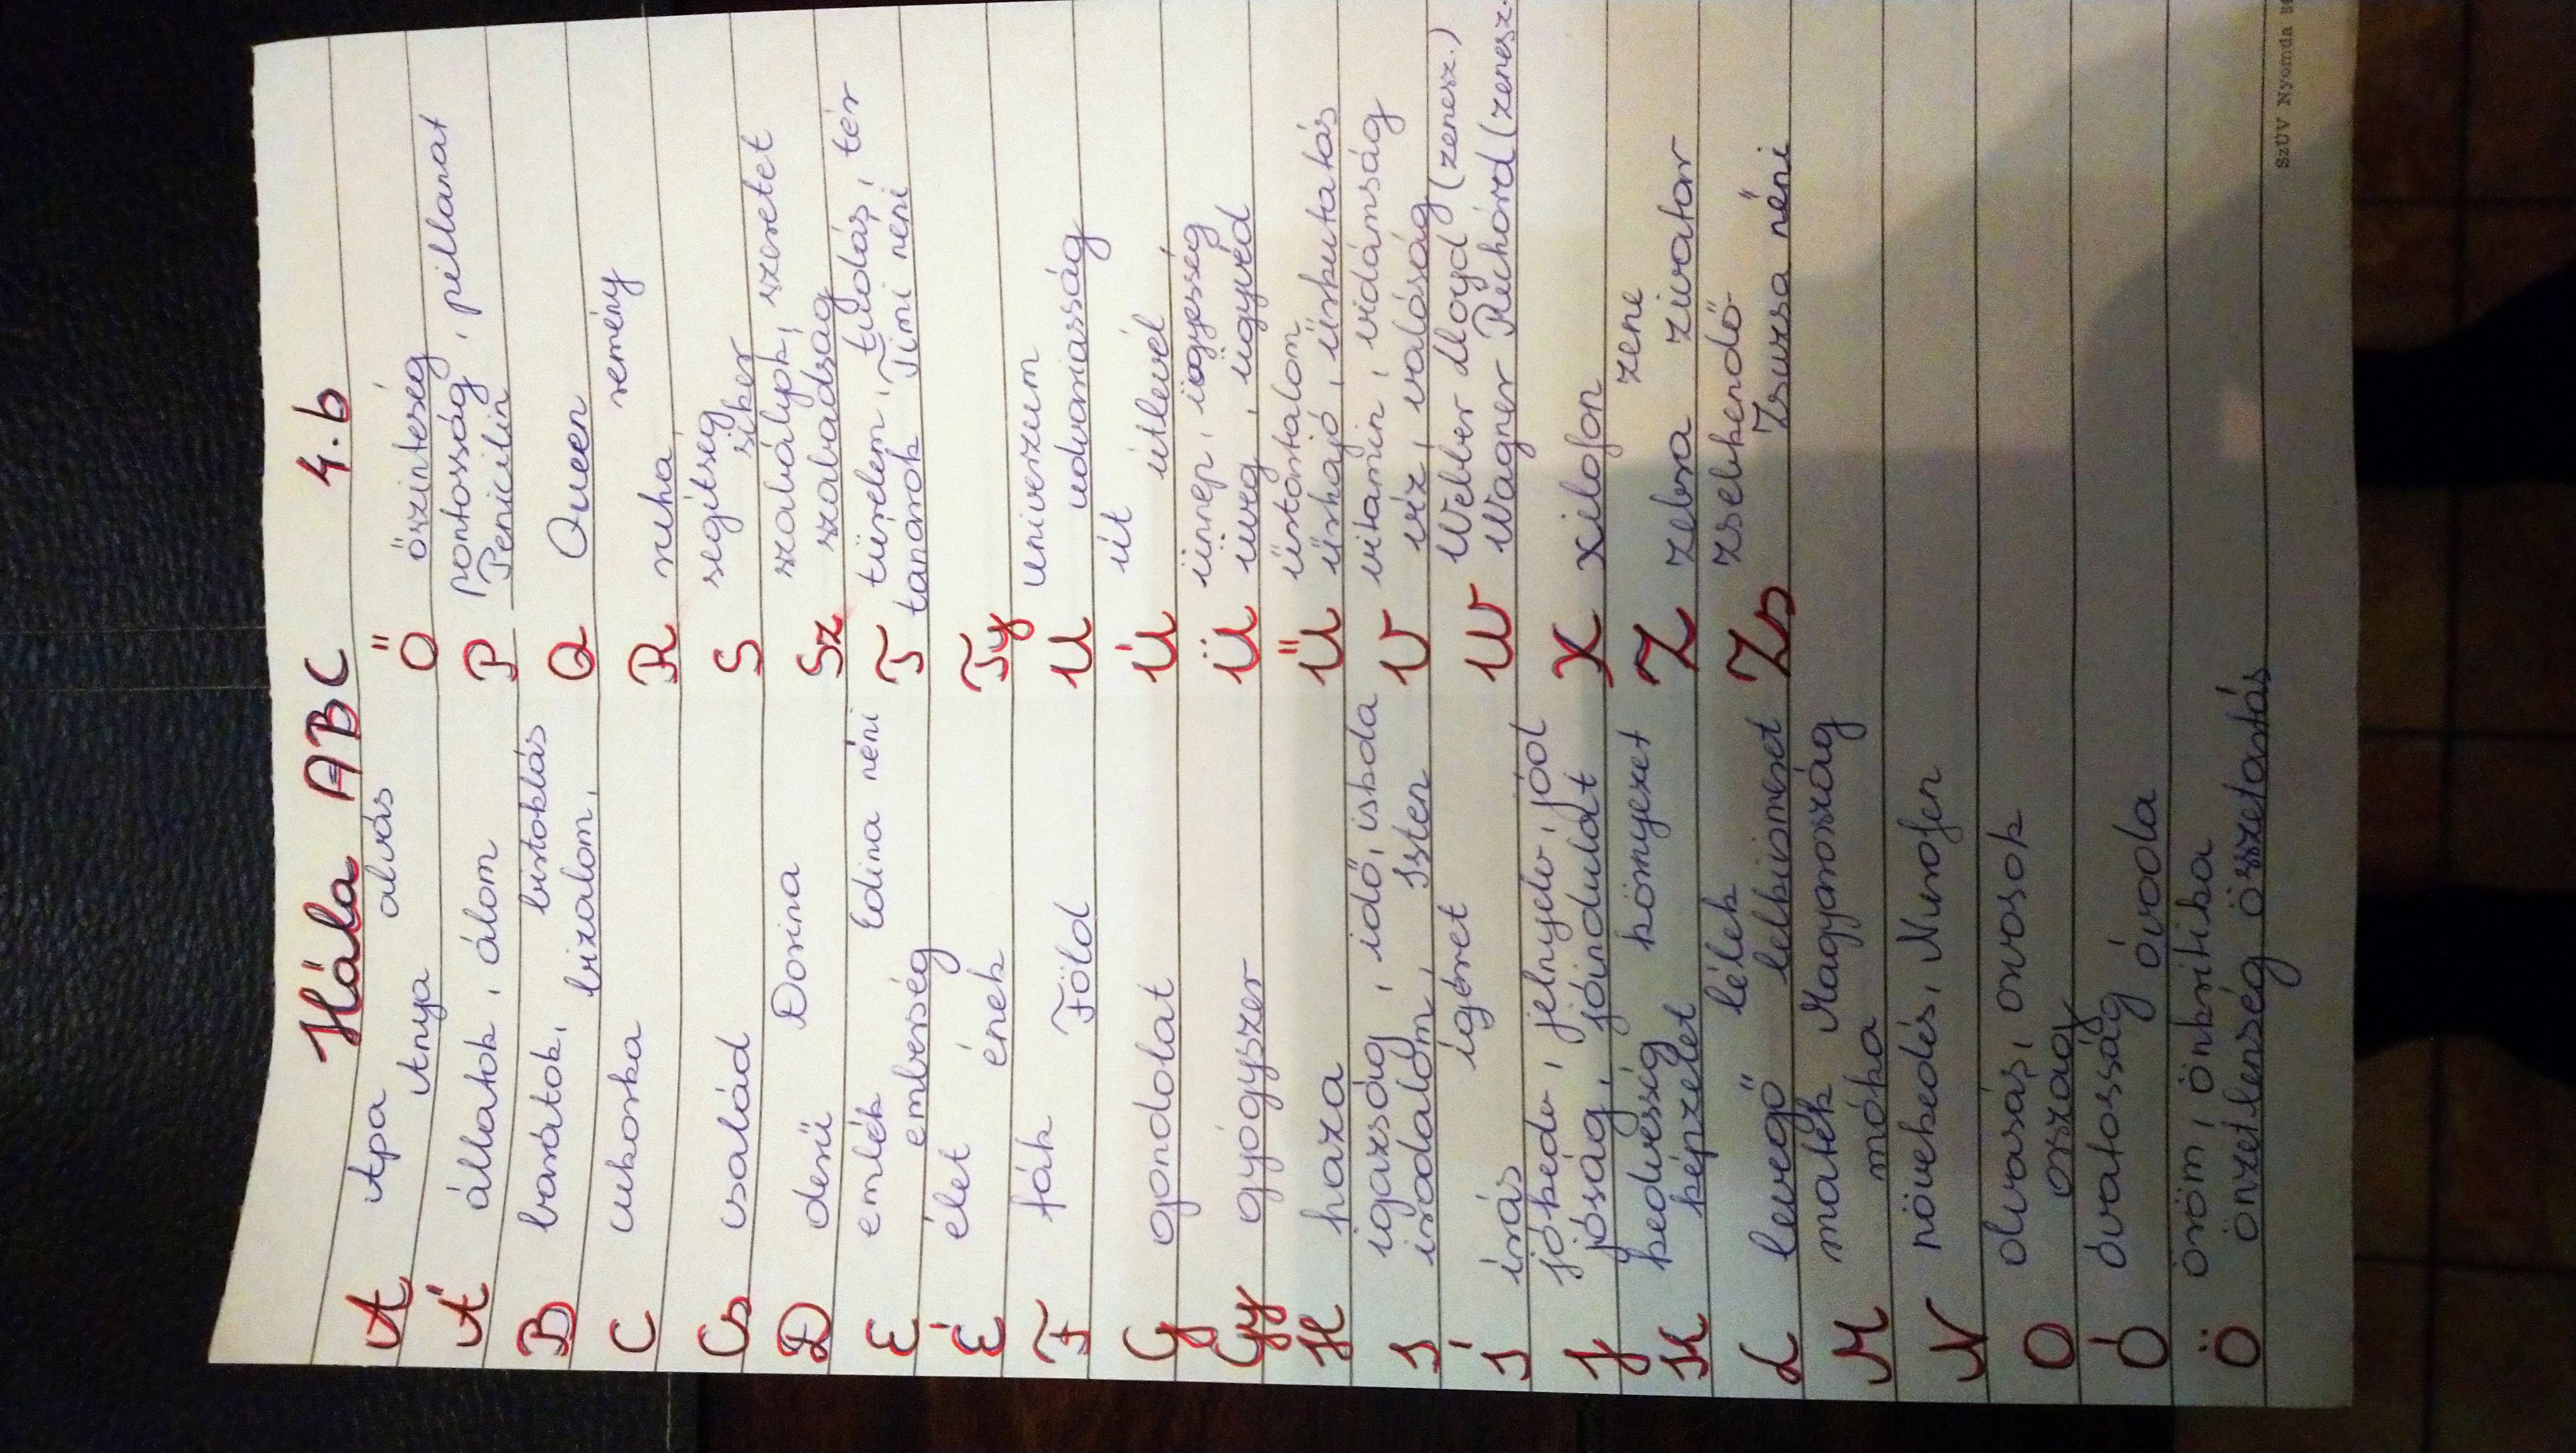 Hála ABC 4.b
A Apa Anya alvás
Á állatok, álom
B barátok, birtoklás
bizalom,
C cukorka
Cs család
D derű Dorina
E emlék Edina néni
emberség
É élet ének
F fák Föld
G gondolat
Gy gyógyszer
H haza
I igazság, idő, iskola
irodalom, Isten
Í írás ígéret
J jókedv, jelnyelv, jód
jóság, jóindulat
K kedvesség környezet
képzelet
L levegő lélek
lelkiismeret
M matek Magyarország
móka
N növekedés, Nurofen
O olvasás, orvosok
ország
Ó óvatosság óvoda
Ö öröm, önkritika
önzetlenség összetartás
Ő őszinteség
P pontosság, pillanat
Penicilin
Q Queen
R ruha remény
S segítség
siker
Sz szabályok, szeretet
szabadság
T türelem, tudás, tér
tanárok Timi néni
Ty
U univerzum
udvariasság
Ú út útlevél
Ü ünnep, ügyesség
üveg, ügyvéd
Ű űrtartalom
űrhajó, űrkutatás
V vitamin, vidámság
víz, valóság
W Webber Lloyd (zenesz.)
Wagner Richárd (zenesz.
X xilofon
Z zene
zebra zivatar
Zs zsebkendő
Zsuzsa néni
SzÜV Nyomda